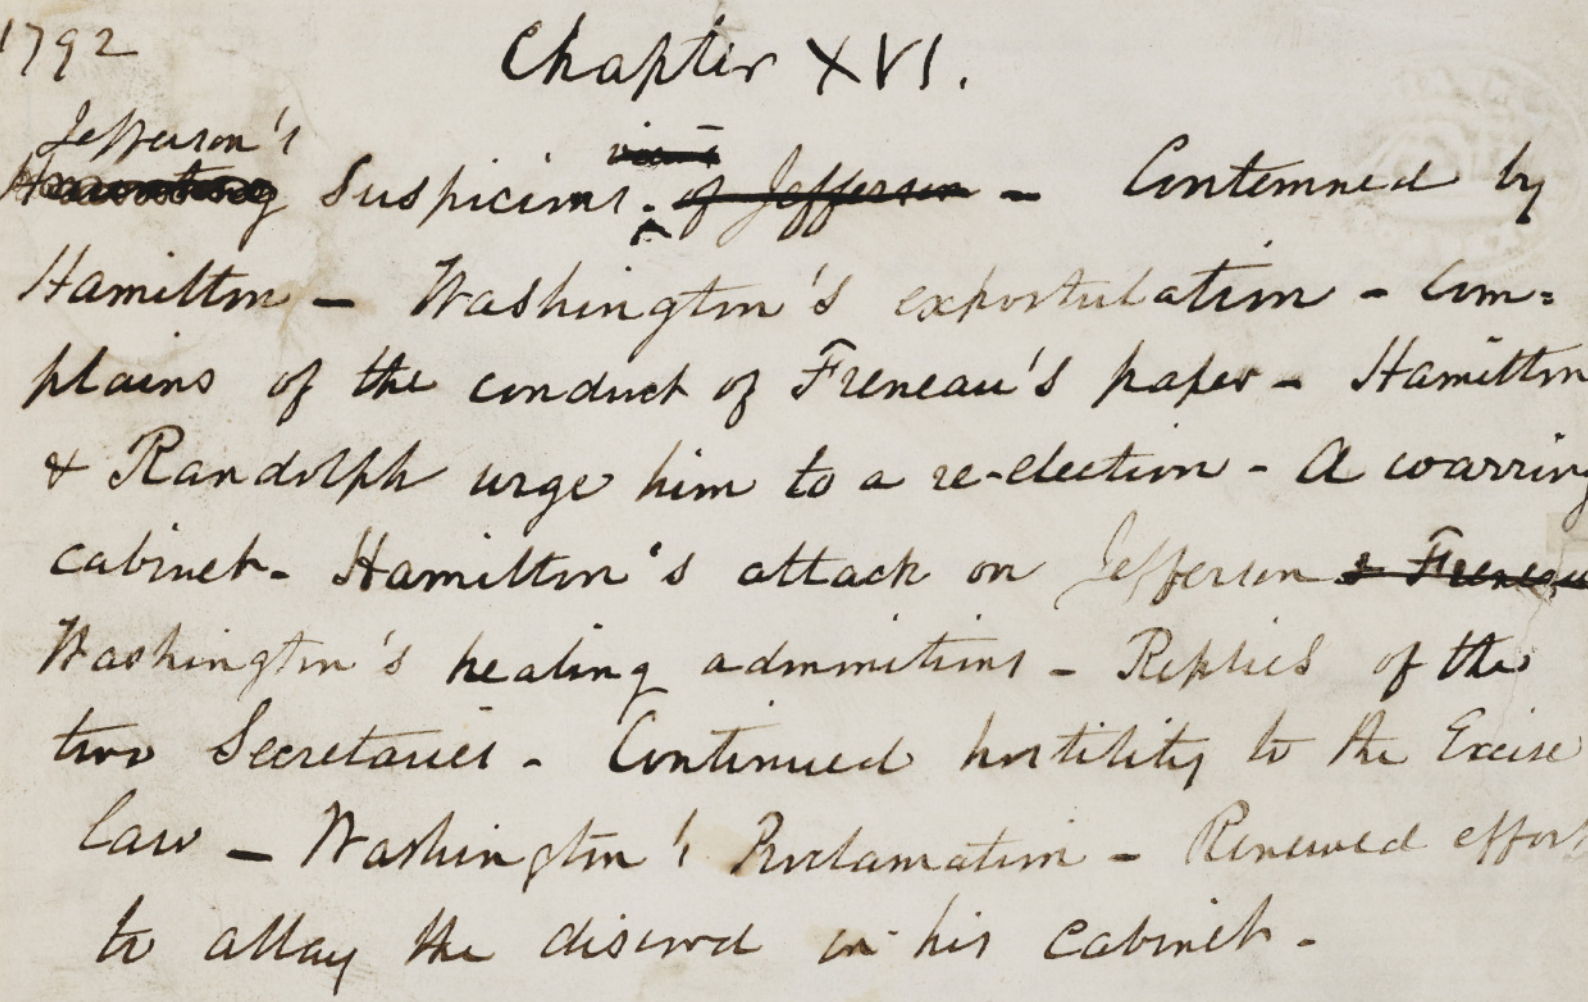 1792
Chapter XVI.
Jefferson's
Haunting Suspicions. of Jefferson - Contemned by
Hamilton - Washington's expostulation - Com=
plains of the conduct of Freneau's paper - Hamilton
& Randolph urge him to a re-election - A warring
cabinet - Hamilton's attack on Jefferson & Freneau
Washington's healing admonitions - Replies of the
two Secretaries - Continued hostility to the Excise
law - Washington's Proclamation - Renewed effort
to allay the discord in his cabinet -